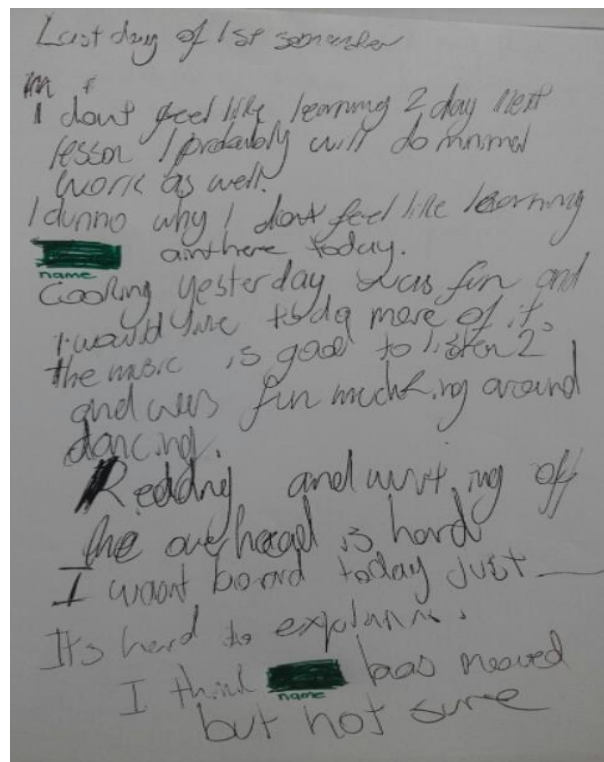 Last day of 1st semester
I dont feel like learning 2day next
lesson I probably will do minimal
work as well.
I dunno why I dont feel like learning
aint here today.
name
Cooking yesterday was fun and
I would like to do more of it.
the music is good to listen 2
and was fun mucking around
dancing.
Reading and writing off
the overhead is hard
I wasnt bored today just
Its hard to explain.
I think has moved
name
but not sure